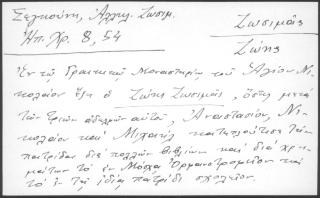 Σεγκούνη, Ἀλληλ. Ζωσιμ.
Ἠπ. Χρ. 8, 54
Ζωσιμᾶς
Ζώης
Ἐν τῷ Γραικικῷ Μοναστηρίῳ τοῦ Ἁγίου Νι-
κολάου ἔζη ὁ Ζώης Ζωσιμᾶς, ὅστις μετὰ
τῶν τριῶν ἀδελφῶν αὐτοῦ, Ἀναστασίου, Νι-
κολάου καὶ Μιχαὴλ κατεπλούτισε τὴν
πατρίδα διὰ πολλῶν βιβλίων καὶ διὰ χρη-
μάτων τὸ ἐν Μόσχᾳ Ὀρφανοτροφεῖον καὶ
τὸ ἐν τῇ ἰδίᾳ πατρίδι σχολεῖον.